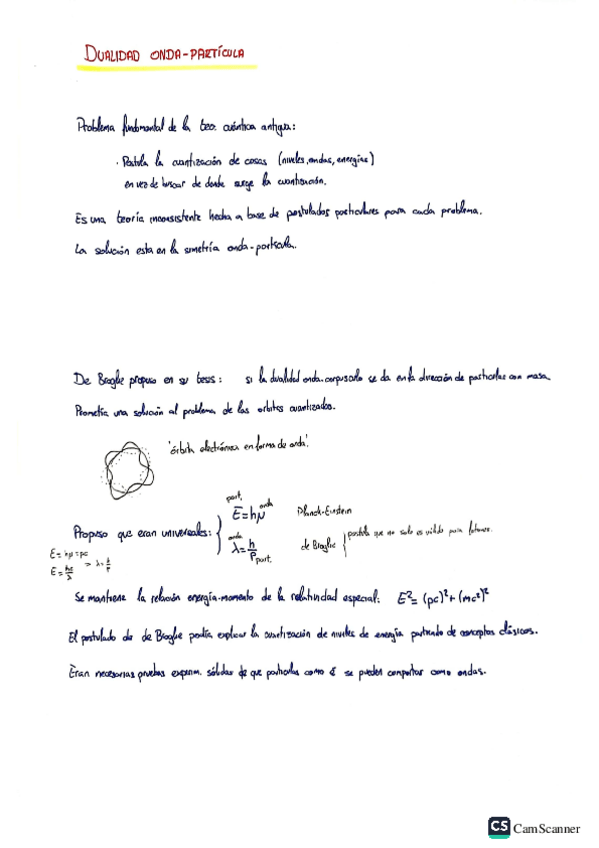 DUALIDAD ONDA-PARTÍCULA
Problema fundamental de la teo. cuántica antigua:
· Postula la cuantización de cosas (niveles, ondas, energías)
en vez de buscar de donde surge la cuantización.
Es una teoría inconsistente hecha a base de postulados particulares para cada problema.
La solución esta en la simetría onda-partícula.
De Broglie propuso en su tesis: si la dualidad onda-corpusculo se da en la dirección de particulas con masa.
Prometía una solución al problema de las orbitas cuantizadas.
'órbita electrónica en forma de onda'.
part. onda
E=hν Planck-Einstein
Propuso que eran universales:
onda
λ=h/p part. de Broglie postula que no solo es válido para fotones.
E=hν=pc
E=hc/λ => λ=h/p
Se mantiene la relación energía-momento de la relatividad especial: E²=(pc)²+(mc²)²
El postulado de de Broglie podía explicar la cuantización de niveles de energía partiendo de conceptos clásicos.
Eran necesarias pruebas experim. sólidas de que partículas como é se pueden comportar como ondas.
CS CamScanner